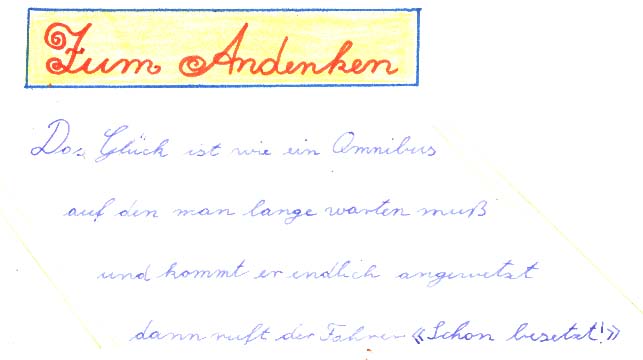 Zum Andenken
Das Glück ist wie ein Omnibus
auf den man lange warten muß
und kommt er endlich angewetzt
dann ruft der Fahrer «Schon besetzt!»